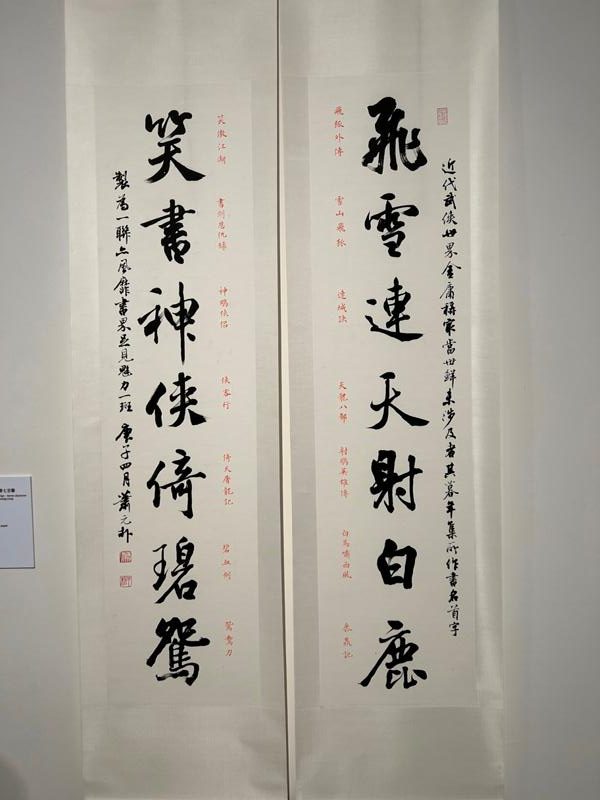 近代武俠世界金庸稱家當世鮮未涉及者其暮年集所作書名首字
飛雪連天射白鹿
飛狐外傳
雪山飛狐
連城訣
天龍八部
射鵰英雄傳
白馬嘯西風
鹿鼎記
笑傲江湖
書劍恩仇錄
神鵰俠侶
俠客行
倚天屠龍記
碧血劍
鴛鴦刀
笑書神俠倚碧鴛
製為一聯亦風靡書界足見魅力一斑 庚子四月蕭元朴